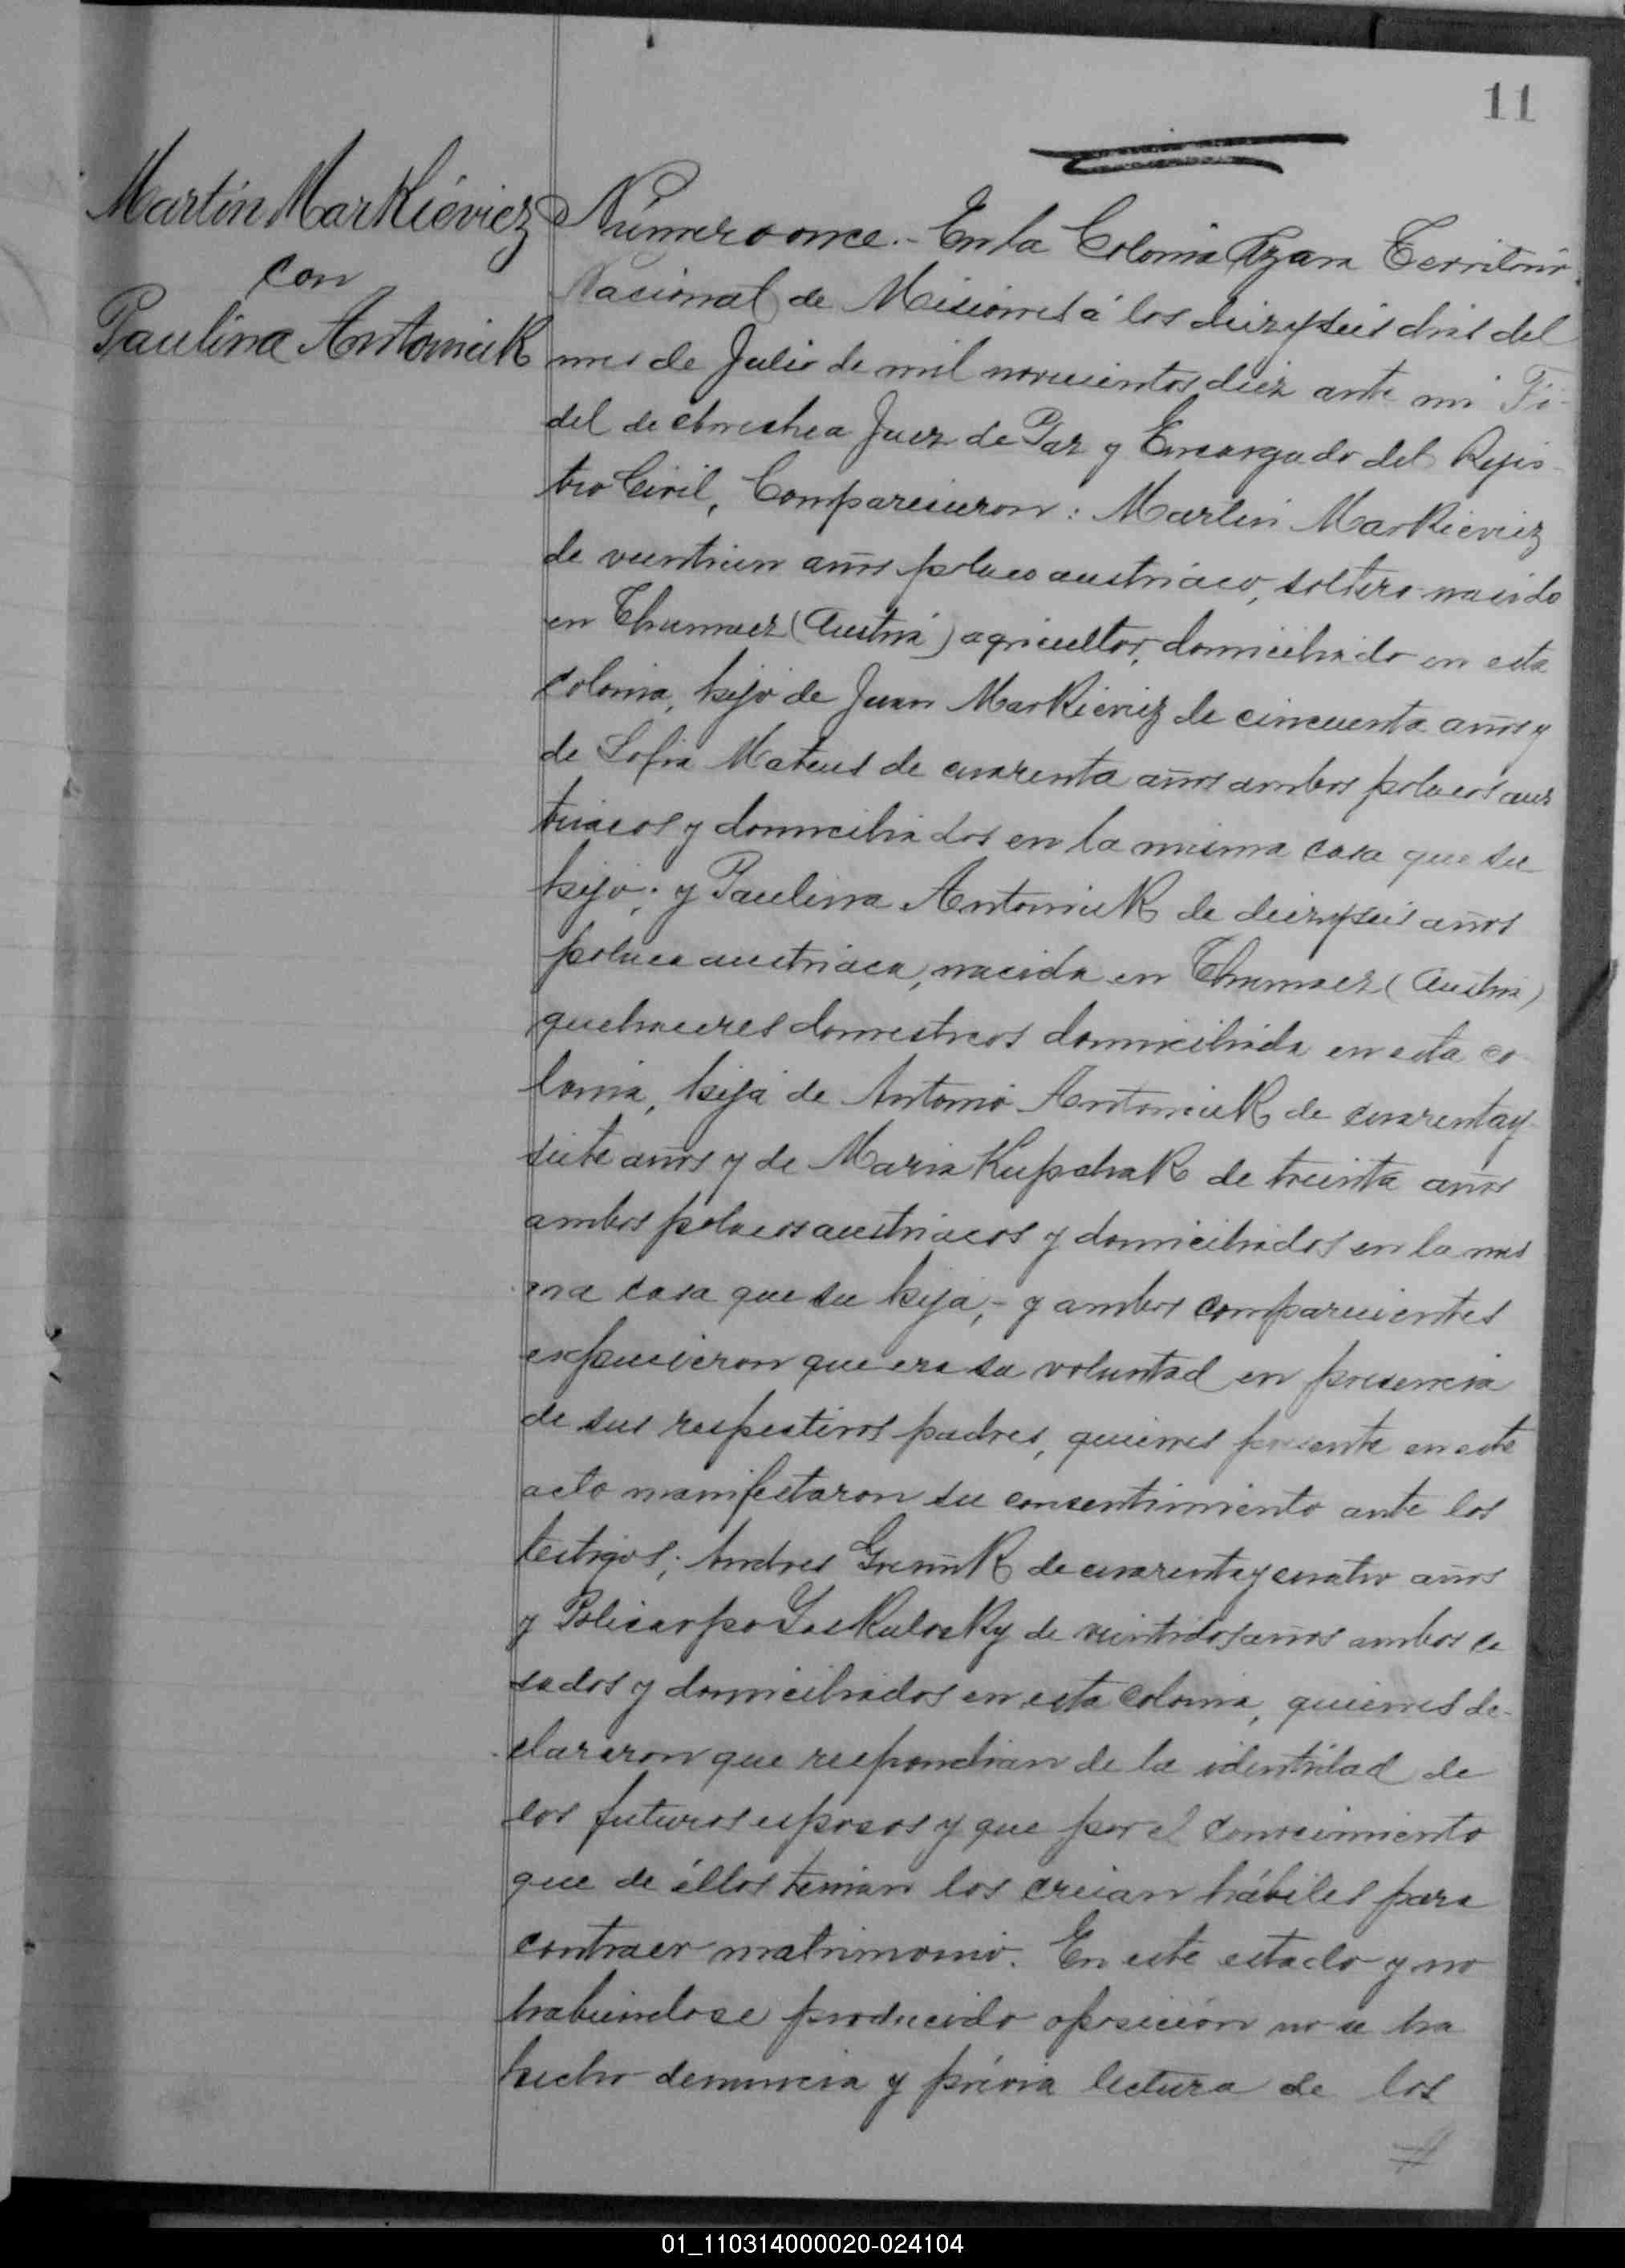 11
Martin Markiéviez
con
Paulina Antoniuk
Número once.- En la Colonia Azara Territorio
Nacional de Misiones á los diezyseis dias del
mes de Julio de mil novecientos diez ante mi Fi-
del de Juez de Paz y Encargado del Regis-
tro Civil, Comparecieron: Martin Markieviez
de veintiun años polaco austriaco, soltero nacido
en (Austria) agricultor, domiciliado en esta
colonia, hijo de Juan Markieviez de cincuenta años y
de Sofia Mateus de cuarenta años ambos polacos aus
triacos y domiciliados en la misma casa que su
hijo; y Paulina Antoniuk de diezyseis años
polaca austriaca, nacida en (Austria)
quehaceres domesticos domiciliada en esta co-
lonia, hija de Antonio Antoniuk de cuarentay-
siete años y de Maria Kupchak de treinta años
ambos polacos austriacos y domiciliados en la mis
ma casa que su hija;- y ambos comparecientes
expusieron que era su voluntad en presencia
de sus respectivos padres, quienes presente en este
acto manifestaron su consentimiento ante los
testigos; Andres de cuarentaycuatro años
y Policarpo de veintidos años ambos ca
sados y domiciliados en esta Colonia, quienes de-
clararon que respondian de la identidad de
los futuros esposos y que por el conocimiento
que de éllos tenian los creian hábiles para
contraer matrimonio. En este estado y no
habiendose producido oposición no se ha
hecho denuncia y prévia lectura de los
01_110314000020-024104